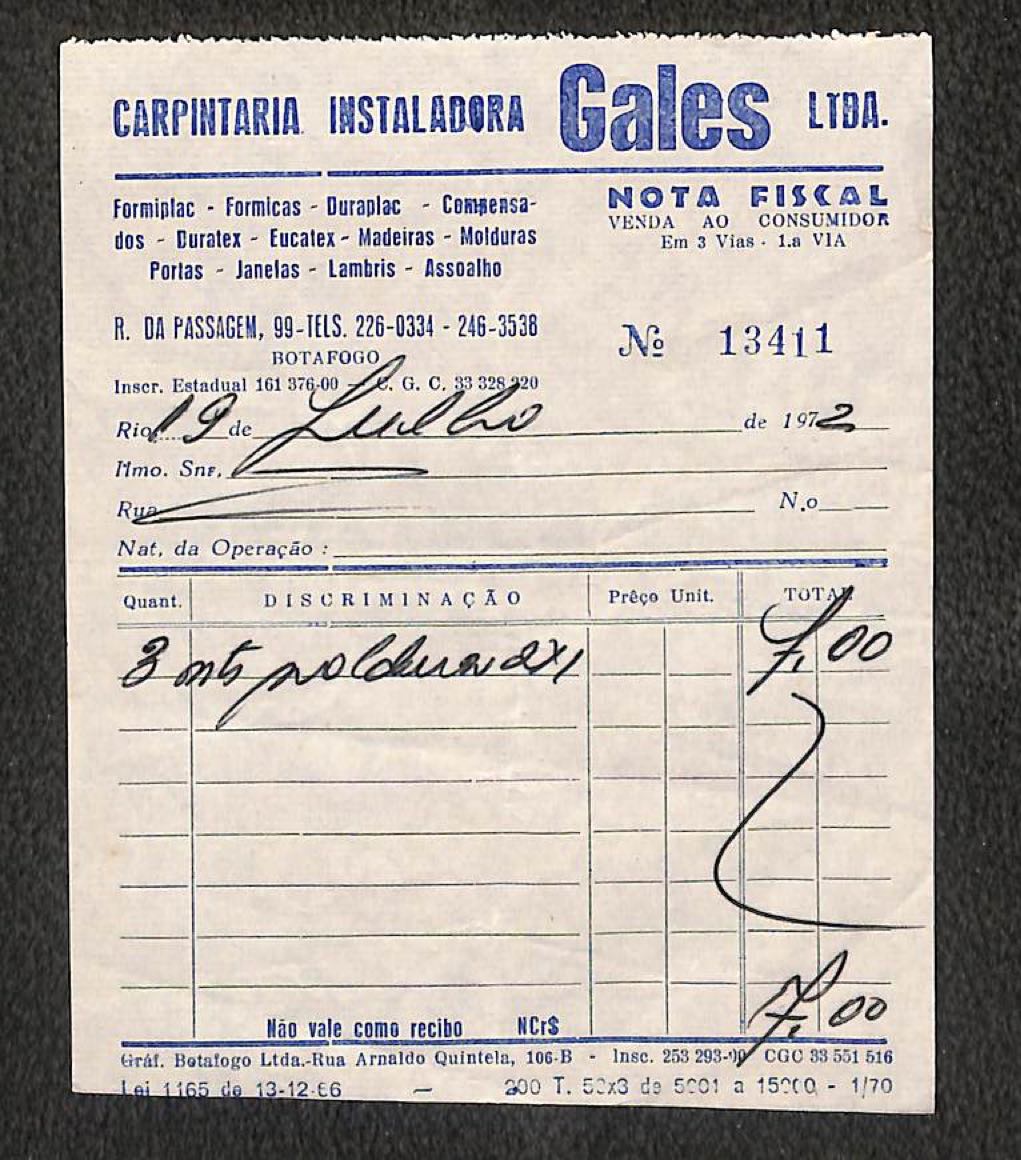 CARPINTARIA INSTALADORA Gales LTDA.
Formiplac - Formicas - Duraplac - Compensa-
dos - Duratex - Eucatex - Madeiras - Molduras
Portas - Janelas - Lambris - Assoalho
NOTA FISCAL
VENDA AO CONSUMIDOR
Em 3 Vias - 1.a VIA
R. DA PASSAGEM, 99-TELS. 226-0334 - 246-3538
BOTAFOGO
Inscr. Estadual 161 376-00 - C. G. C. 33 328 220
Nº 13411
Rio, 19 de Julho de 1972
Ilmo. Snr.
Rua N.o
Nat. da Operação :
Quant. DISCRIMINAÇÃO Prêço Unit. TOTAL
3 mts molduras 2x1 7,00
Não vale como recibo NCr$ 7,00
Gráf. Botafogo Ltda.-Rua Arnaldo Quintela, 106-B - Insc. 253 293-00 CGC 33 551 516
Lei 1165 de 13-12-66 - 200 T. 50x3 de 5001 a 15000 - 1/70